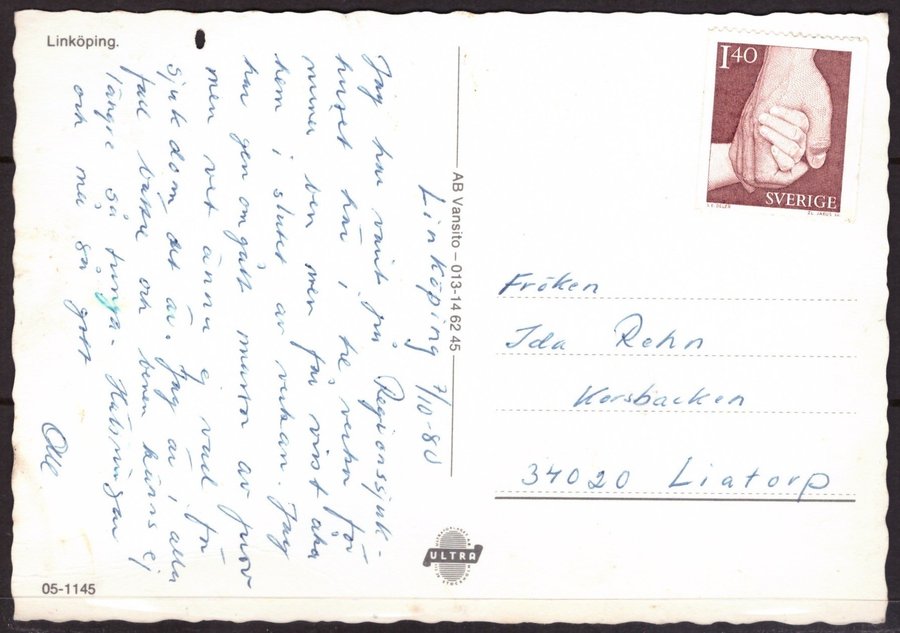 Linköping.
Linköping 7/10-80
Jag har varit på Regionssjuk-
huset här i tre veckor för
mina ben men får visst åka
hem i slutet av veckan. Jag
har genomgått massor av prov
men vet ännu ej vad för
sjukdom det är. Jag är i alla
fall bättre och benen känns ej
längre så tunga. Hälsningar
och må så gott
Olle
AB Vansito – 013-14 62 45
1.40
SVERIGE
Fröken
Ida Rehn
Korsbacken
34020 Liatorp
ULTRA
05-1145